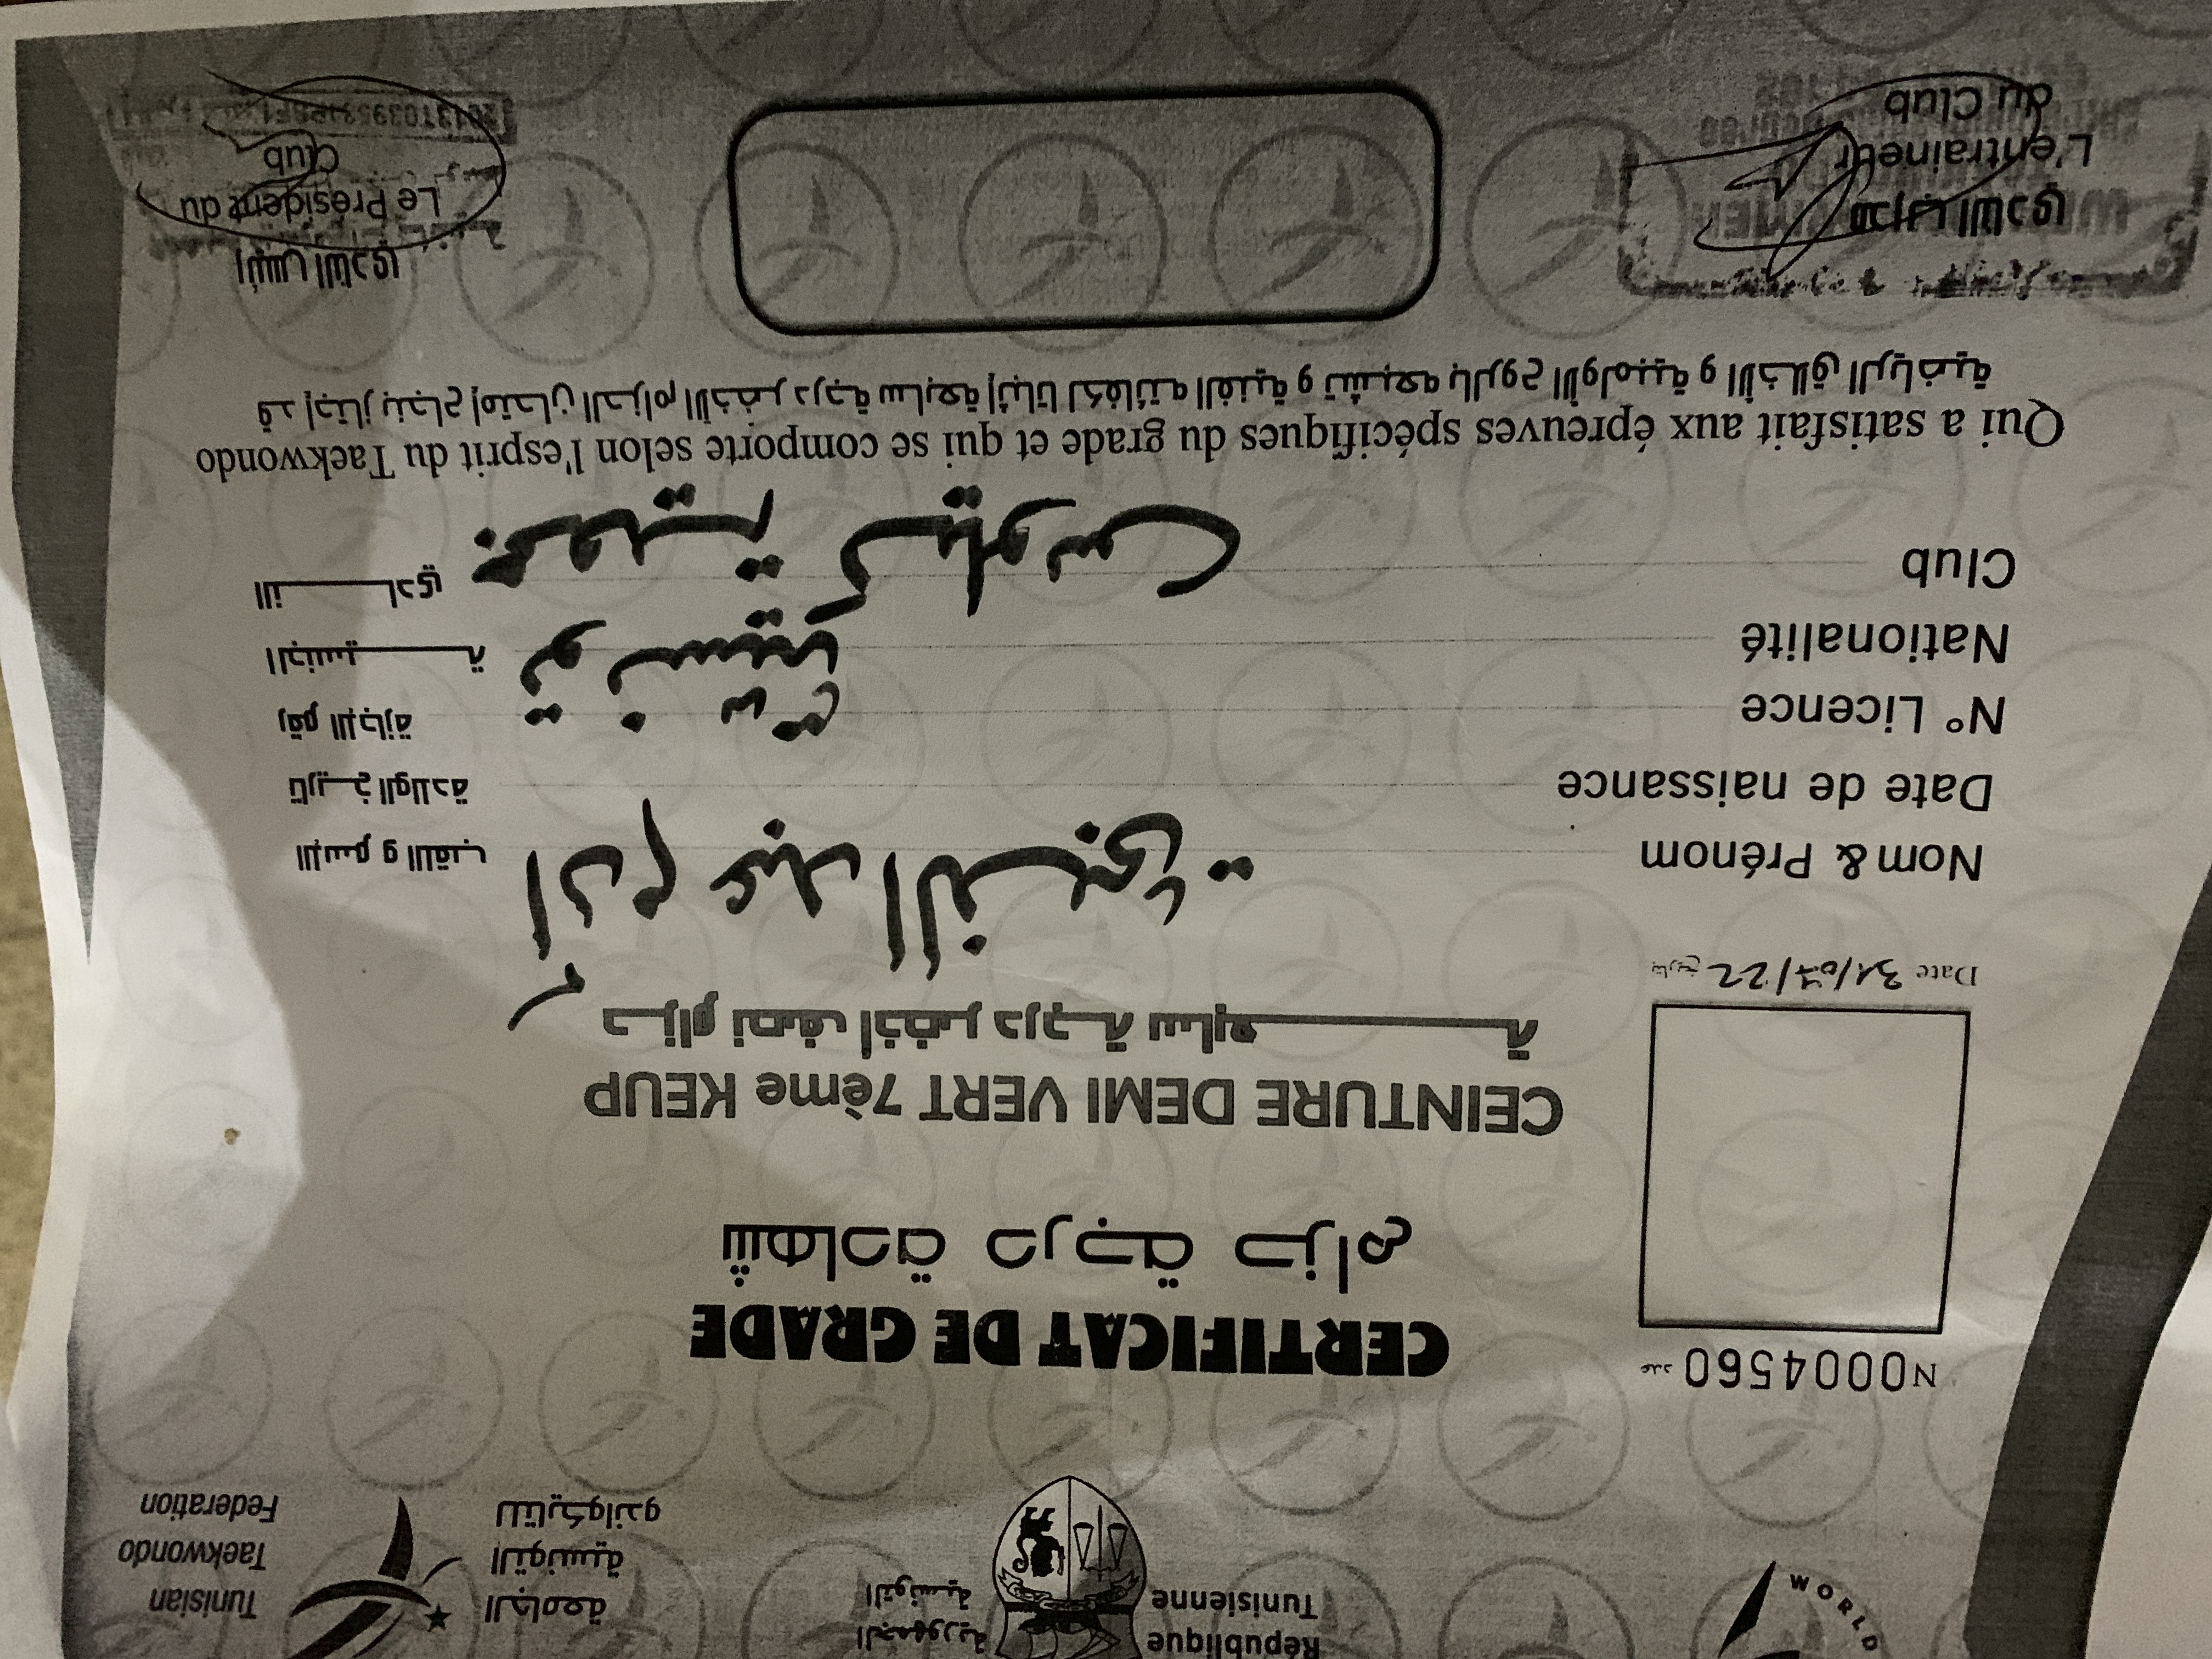 République
Tunisienne
الجمهورية
التونسية
WORLD
الجامعة
التونسية
للتايكواندو
Tunisian
Taekwondo
Federation
N0004560 عدد
CERTIFICAT DE GRADE
شهادة درجة حزام
CEINTURE DEMI VERT 7ème KEUP
حزام نصف اخضر درجة سابعة
Date 31/07/22 تاريخ
Nom & Prénom آدم عبد النبي الإسم و اللقب
Date de naissance تاريخ الولادة
N° Licence رقم الإجازة
Nationalité تونسية الجنسية
Club النادي
Qui a satisfait aux épreuves spécifiques du grade et qui se comporte selon l'esprit du Taekwondo
قد إجتاز بنجاح إمتحان الحزام الأخضر درجة سابعة إثباتا لكفائته الفنية و تشبعه بالروح الأولمبية و الأخلاق الرياضية
مدرب النادي
L'entraineur
du Club
رئيس النادي
Le Président du
Club